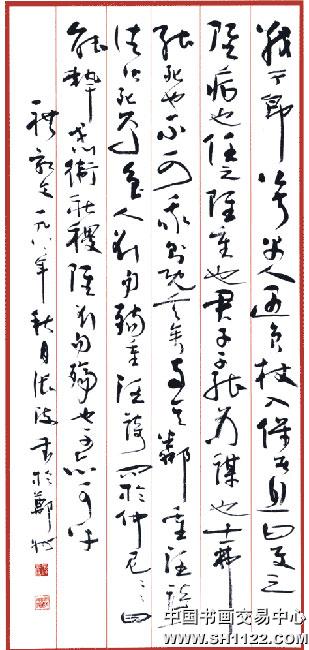 戰于郎公叔禺人遇負杖入保者息曰使之
雖病也任之雖重也君子不能為謀也士弗
能死也不可我則既言矣與其鄰重汪踦
往皆死焉魯人欲勿殤重汪踦問於仲尼曰
能執戈衛社稷雖欲勿殤也不亦可乎
禮記 一九八年秋月 書於鄭州
中国书画交易中心
www.SH1122.com